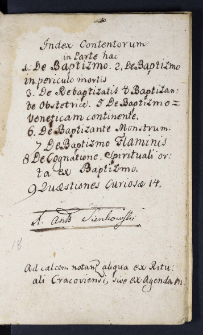 Index Contentorum
in Parte hac
1. De Baptizmo. 2. De Baptizmo
in periculo mortis
3. De Rebaptizatis 4 Baptizan:
de Obstetrice. 5 De Baptizmo =
Veneticam continente.
6. De Baptizante Monstrum.
7 De Baptizmo Flaminis
8 De Cognatione Spirituali or:
ta ex Baptizmo.
9 Quæstiones Curiosæ 14.
A. Ant
18
Ad calcem notant aliqua ex Ritu:
ali Cracoviensi, sive ex Agenda